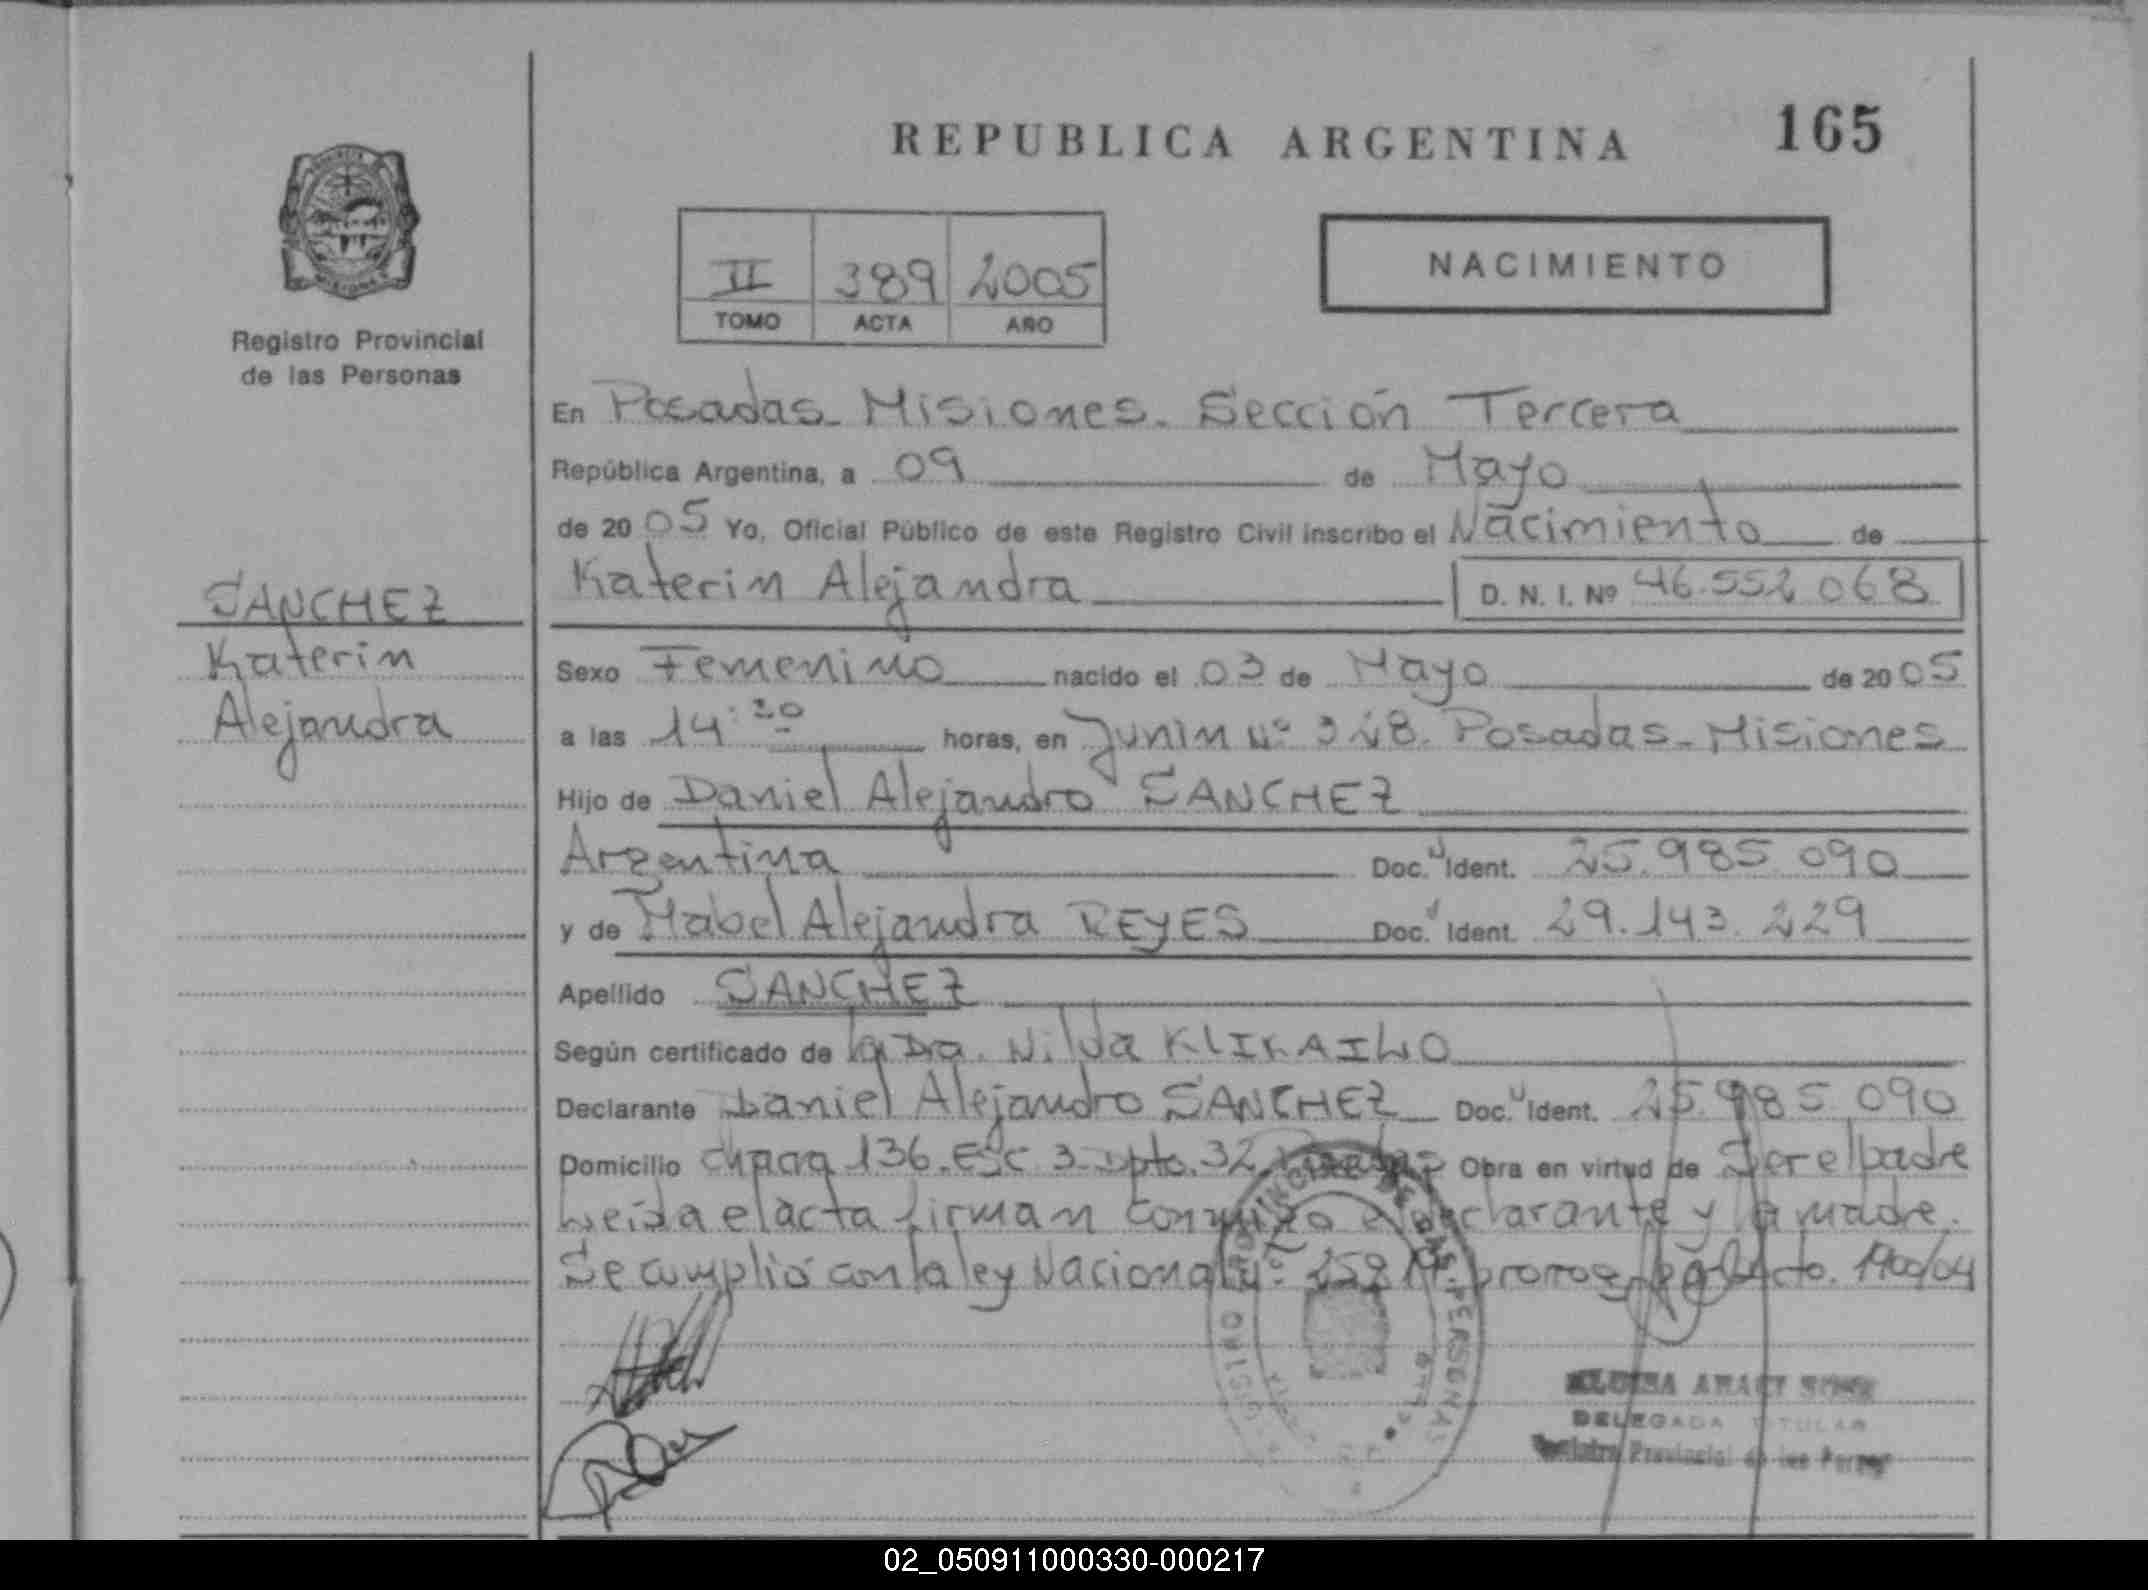 REPUBLICA ARGENTINA
165
II 389 2005
TOMO ACTA AÑO
NACIMIENTO
Registro Provincial
de las Personas
SANCHEZ
Katerin
Alejandra
En Posadas - Misiones. Sección Tercera
República Argentina, a 09 de Mayo
de 2005 Yo, Oficial Público de este Registro Civil inscribo el Nacimiento de
Katerin Alejandra D. N. I. Nº 46.552.068
Sexo Femenino nacido el 03 de Mayo de 2005
a las 14: horas, en Junin Nº 328. Posadas - Misiones
Hijo de Daniel Alejandro SANCHEZ
Argentina Doc. Ident. 25.985.090
y de Mabel Alejandra REYES Doc. Ident. 29.143.229
Apellido SANCHEZ
Según certificado de la Dra. Nilda
Declarante Daniel Alejandro SANCHEZ Doc. Ident. 25.985.090
Domicilio chacra 136. Esc 3. Dpto. 32 Obra en virtud de Ser el padre
Leida el acta firman conmigo el declarante y la madre.
Se cumplió con la ley Nacional Nº
DELEGADA TITULAR
Registro Provincial de las
02_050911000330-000217